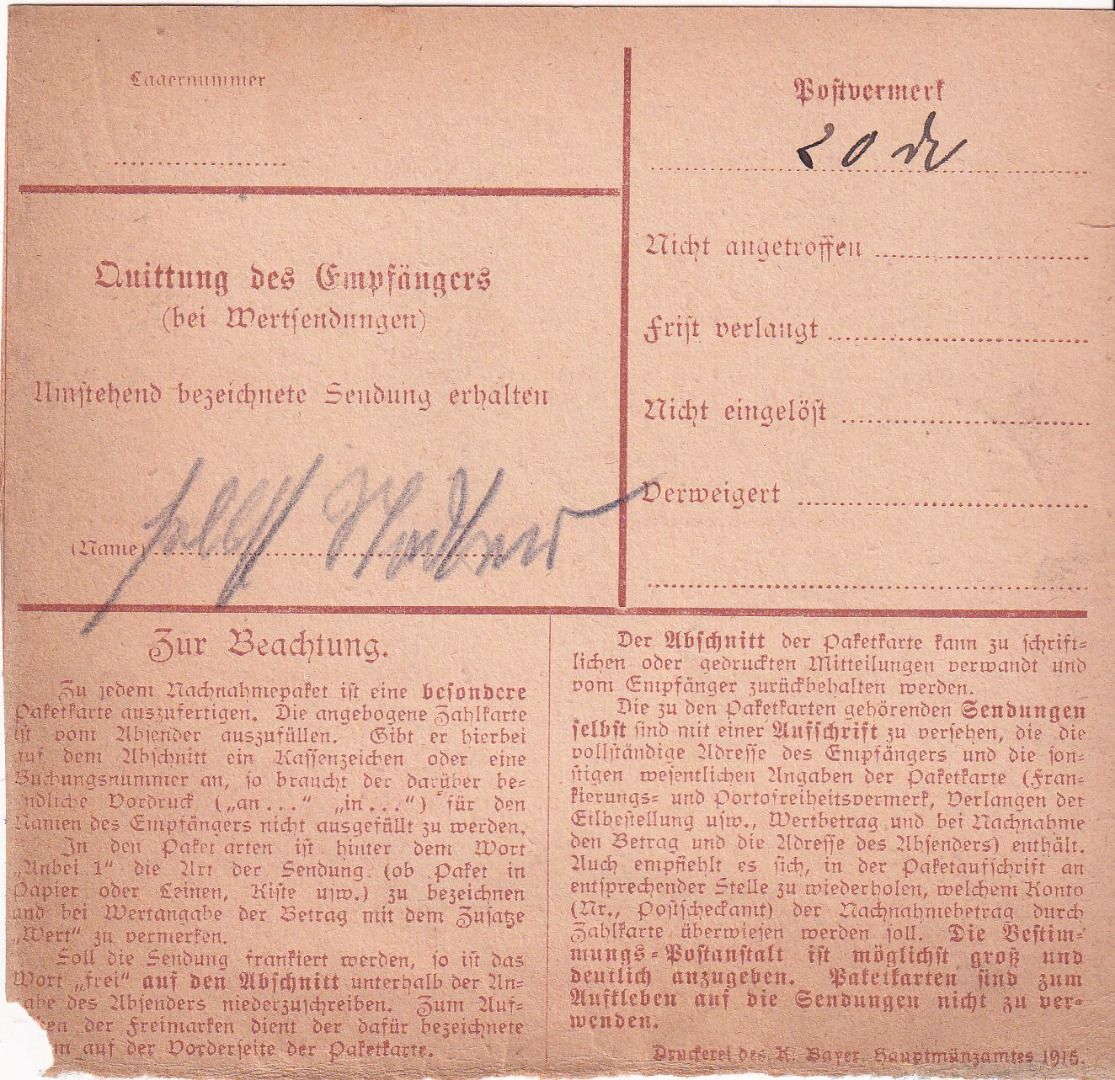 Lagernummer
Quittung des Empfängers
(bei Wertsendungen)
Umstehend bezeichnete Sendung erhalten
(Name)
Postvermerk
20
Nicht angetroffen
Frist verlangt
Nicht eingelöst
Verweigert
Zur Beachtung.
Zu jedem Nachnahmepaket ist eine besondere
Paketkarte auszufertigen. Die angebogene Zahlkarte
ist vom Absender auszufüllen. Gibt er hierbei
auf dem Abschnitt ein Kassenzeichen oder eine
Buchungsnummer an, so braucht der darüber be-
ndliche Vordruck („an...“ „in...“) für den
Namen des Empfängers nicht ausgefüllt zu werden.
In den Paket arten ist hinter dem Wort
„Anbei 1“ die Art der Sendung (ob Paket in
Papier oder Leinen, Kiste usw.) zu bezeichnen
und bei Wertangabe der Betrag mit dem Zusatze
„Wert“ zu vermerken.
Soll die Sendung frankiert werden, so ist das
Wort „frei“ auf den Abschnitt unterhalb der An-
gabe des Absenders niederzuschreiben. Zum Auf-
en der Freimarken dient der dafür bezeichnete
m auf der Vorderseite der Paketkarte.
Der Abschnitt der Paketkarte kann zu schrift-
lichen oder gedruckten Mitteilungen verwandt und
vom Empfänger zurückbehalten werden.
Die zu den Paketkarten gehörenden Sendungen
selbst sind mit einer Aufschrift zu versehen, die die
vollständige Adresse des Empfängers und die son-
stigen wesentlichen Angaben der Paketkarte (Fran-
kierungs- und Portofreiheitsvermerk, Verlangen der
Eilbestellung usw., Wertbetrag und bei Nachnahme
den Betrag und die Adresse des Absenders) enthält.
Auch empfiehlt es sich, in der Paketaufschrift an
entsprechender Stelle zu wiederholen, welchem Konto
(Nr., Postscheckamt) der Nachnahmebetrag durch
Zahlkarte überwiesen werden soll. Die Bestim-
mungs-Postanstalt ist möglichst groß und
deutlich anzugeben. Paketkarten sind zum
Aufkleben auf die Sendungen nicht zu ver-
wenden.
Druckerei des K. Bayer. Hauptmünzamtes 1915.